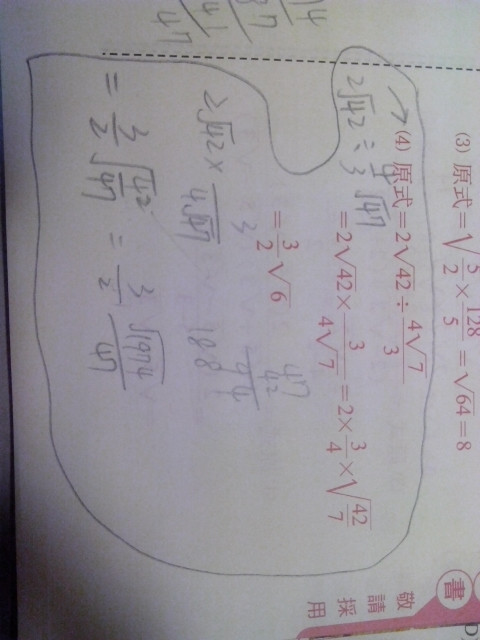 (3) 原式=√(5/2×128/5)=√64=8
(4) 原式=2√42÷(4√7)/3
=2√42×3/(4√7)=2×3/4×√(42/7)
=3/2√6
2√42÷4/3√47
2√42×3/(4√47)
=3/2√(42/47)=3/2 √1974/47
47
42
94
188
敬請採用
書